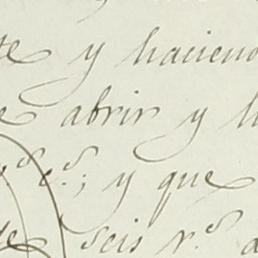 te y haciend
e abrir y l
y.s c.s; y que
te seis r.s a